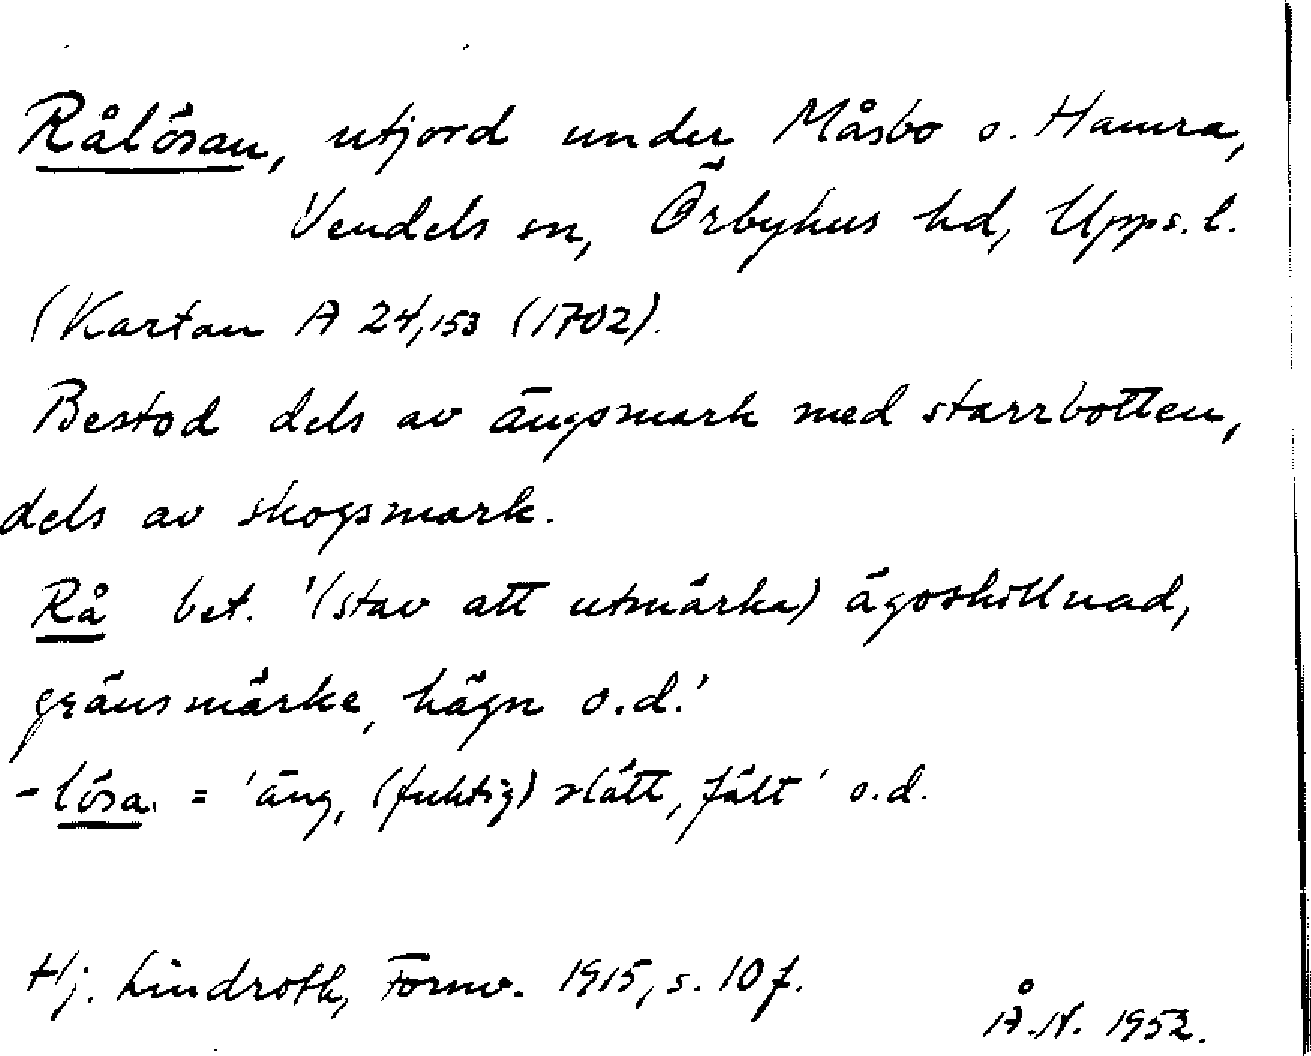 Rålösan, utjord under Måsbo o. Hamra,
Vendels sn, Örbyhus hd, Upps. l.
(Kartan A 24,153 (1702).
Bestod dels av ängsmark med starrbotten,
dels av skogsmark.
Rå bet. '(stav att utmärka) ägoskillnad,
gränsmärke, hägn o.d.'
-lösa = 'äng, (fuktig) slätt, fält' o.d.
Hj. Lindroth, Fornv. 1915, s. 10 f.
Å.N. 1952.